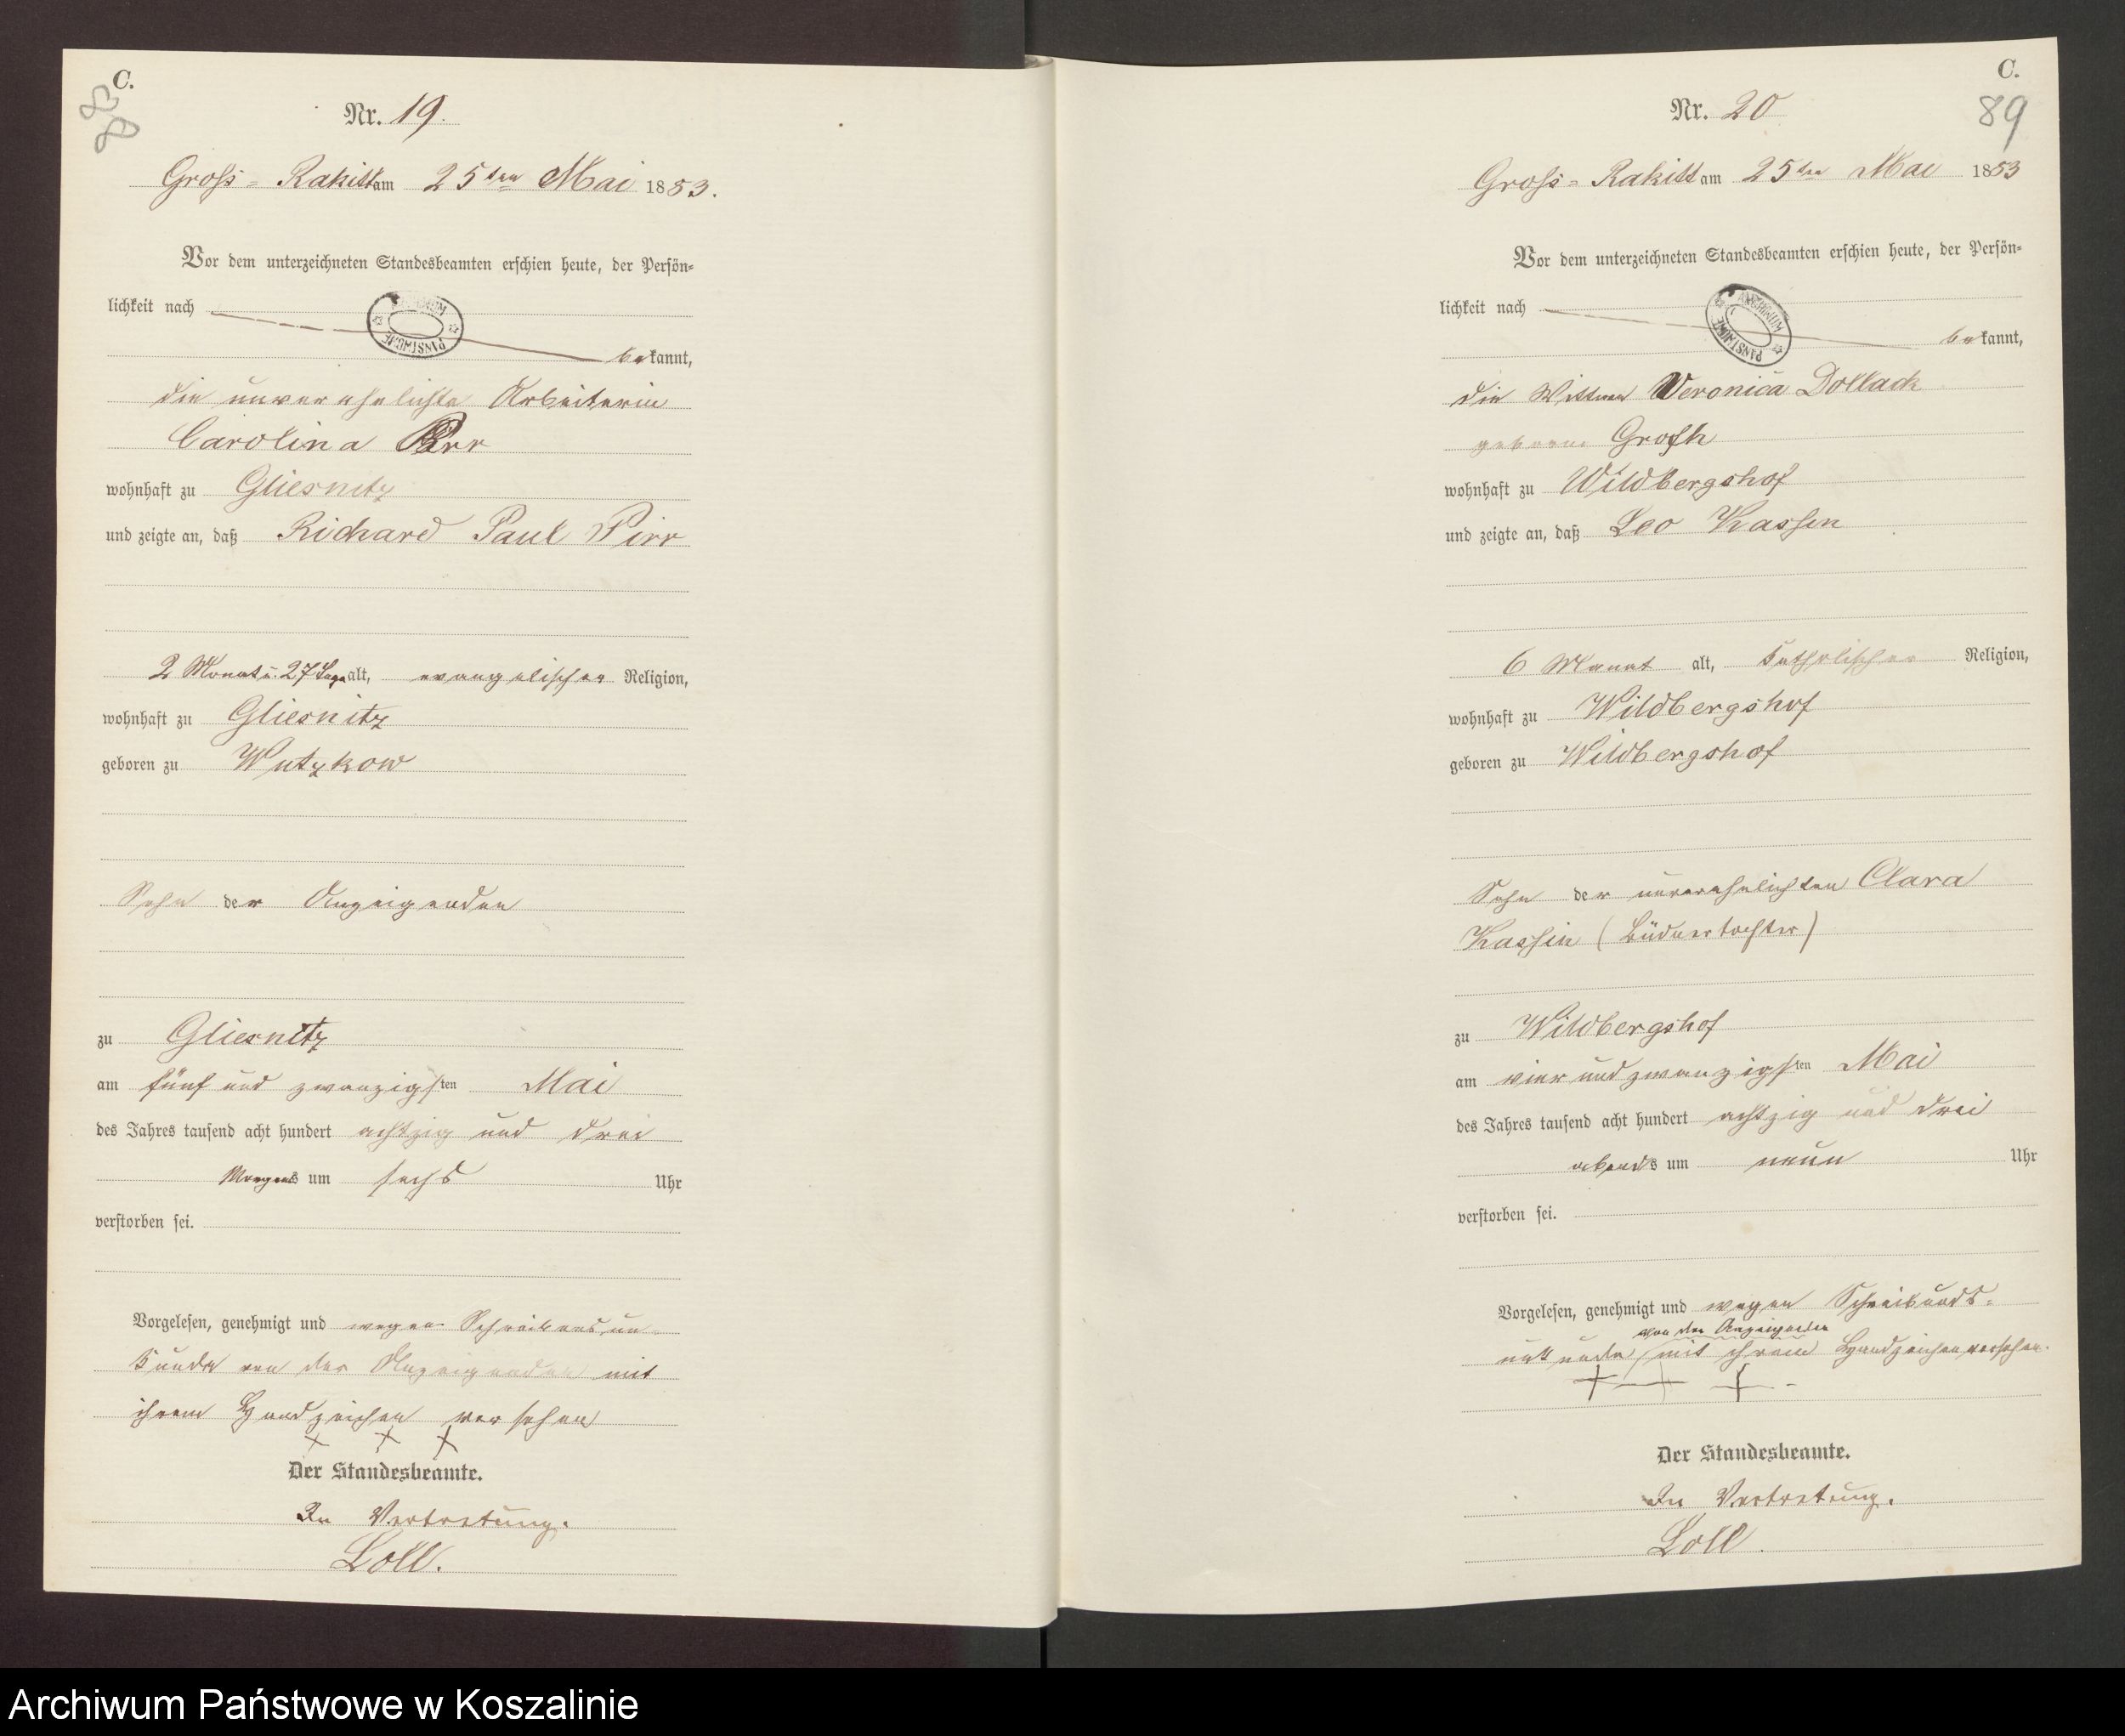 C.
88
Nr. 19.
Gross-Rakitt am 25ten Mai 1883.
Vor dem unterzeichneten Standesbeamten erschien heute, der Persön-
lichkeit nach
ARCHIWUM PAŃSTWOWE
bekannt,
die unverehelichte Arbeiterin
Carolina Pirr
wohnhaft zu Gliesnitz
und zeigte an, daß Richard Paul Pirr
2 Monat u. 27 Tage alt, evangelischer Religion,
wohnhaft zu Gliesnitz
geboren zu Wutzkow
Sohn der Anzeigenden
zu Gliesnitz
am fünf und zwanzigsten Mai
des Jahres tausend acht hundert achtzig und drei
Morgens um sechs Uhr
verstorben sei.
Vorgelesen, genehmigt und wegen Schreibensun-
kunde von der Anzeigenden mit
ihrem Handzeichen versehen
+ + +
Der Standesbeamte.
In Vertretung.
Loll.
C.
89
Nr. 20
Gross-Rakitt am 25ten Mai 1883
Vor dem unterzeichneten Standesbeamten erschien heute, der Persön-
lichkeit nach
ARCHIWUM PAŃSTWOWE
bekannt,
die Wittwe Veronica Dollack
geborne
wohnhaft zu Wildbergshof
und zeigte an, daß Leo Kassin
6 Monat alt, katholischer Religion,
wohnhaft zu Wildbergshof
geboren zu Wildbergshof
Sohn der unverehelichten Clara
Kassin (Büdnertochter)
zu Wildbergshof
am vier und zwanzigsten Mai
des Jahres tausend acht hundert achtzig und drei
abends um neun Uhr
verstorben sei.
Vorgelesen, genehmigt und wegen
von der Anzeigenden
mit ihrem Handzeichen versehen.
+ + +
Der Standesbeamte.
In Vertretung.
Loll.
Archiwum Państwowe w Koszalinie